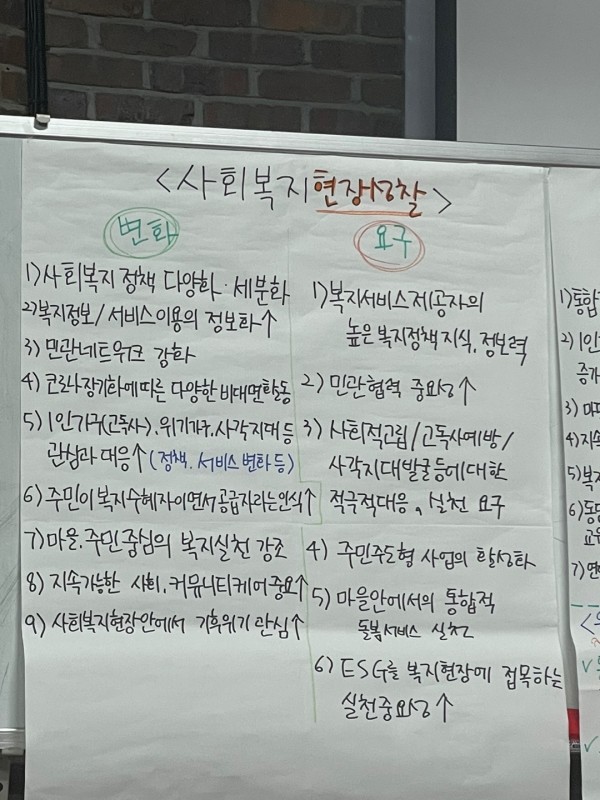 <사회복지현장성찰>
변화
1) 사회복지 정책 다양화·세분화
2) 복지정보/서비스이용의 정보화↑
3) 민관네트워크 강화
4) 코로나장기화에따른 다양한 비대면활동
5) 1인가구(고독사), 위기가구, 사각지대 등
관심과 대응↑ (정책, 서비스 변화 등)
6) 주민이 복지수혜자이면서 공급자라는 인식↑
7) 마을, 주민중심의 복지실천 강조
8) 지속가능한 사회, 커뮤니티케어 중요↑
9) 사회복지현장안에서 기후위기 관심↑
요구
1) 복지서비스제공자의
높은 복지정책지식, 정보력
2) 민관협력 중요성↑
3) 사회적고립/고독사예방/
사각지대발굴 등에 대한
적극적대응, 실천 요구
4) 주민주도형 사업의 활성화
5) 마을안에서의 통합적
돌봄서비스 실천
6) ESG를 복지현장에 접목하는
실천중요성↑
1) 통합
2) 1인
증가
3) 마
4) 지속
5) 복지
6) 동
교육
7)